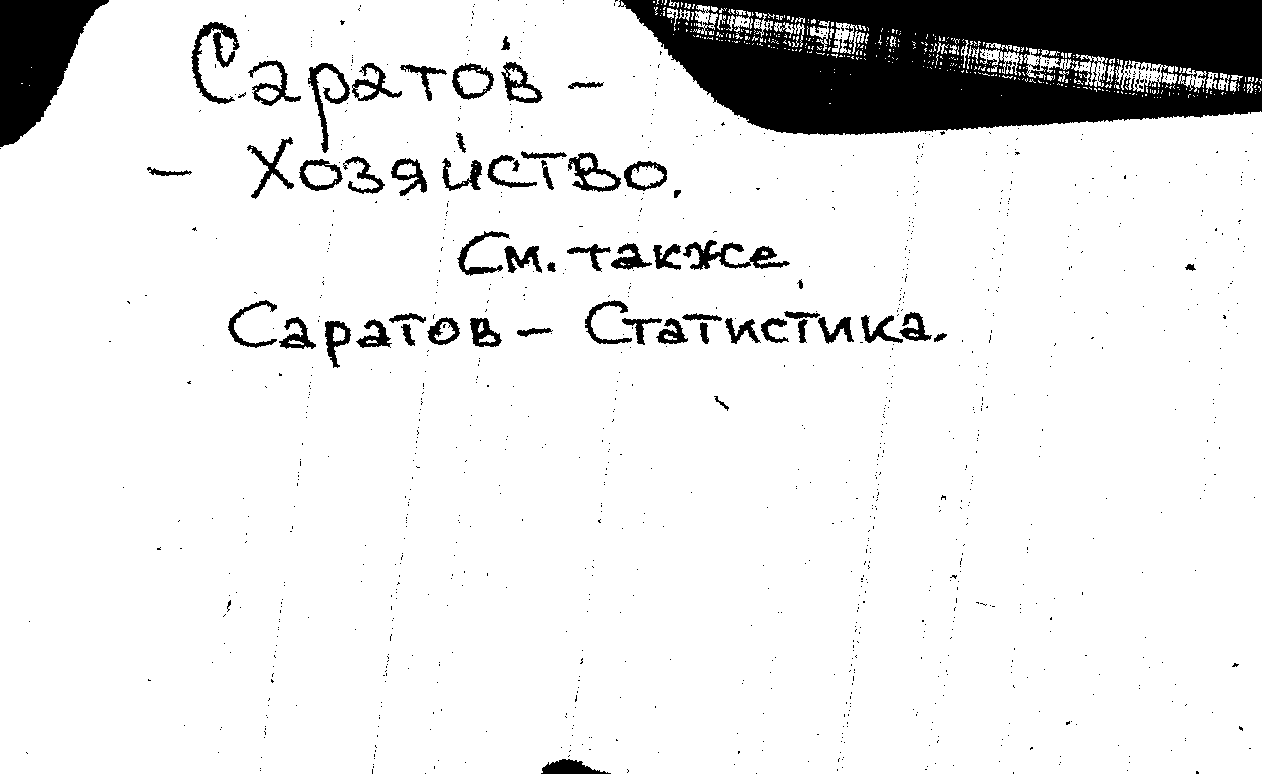 Саратов –
– Хозяйство.
См. также
Саратов – Статистика.